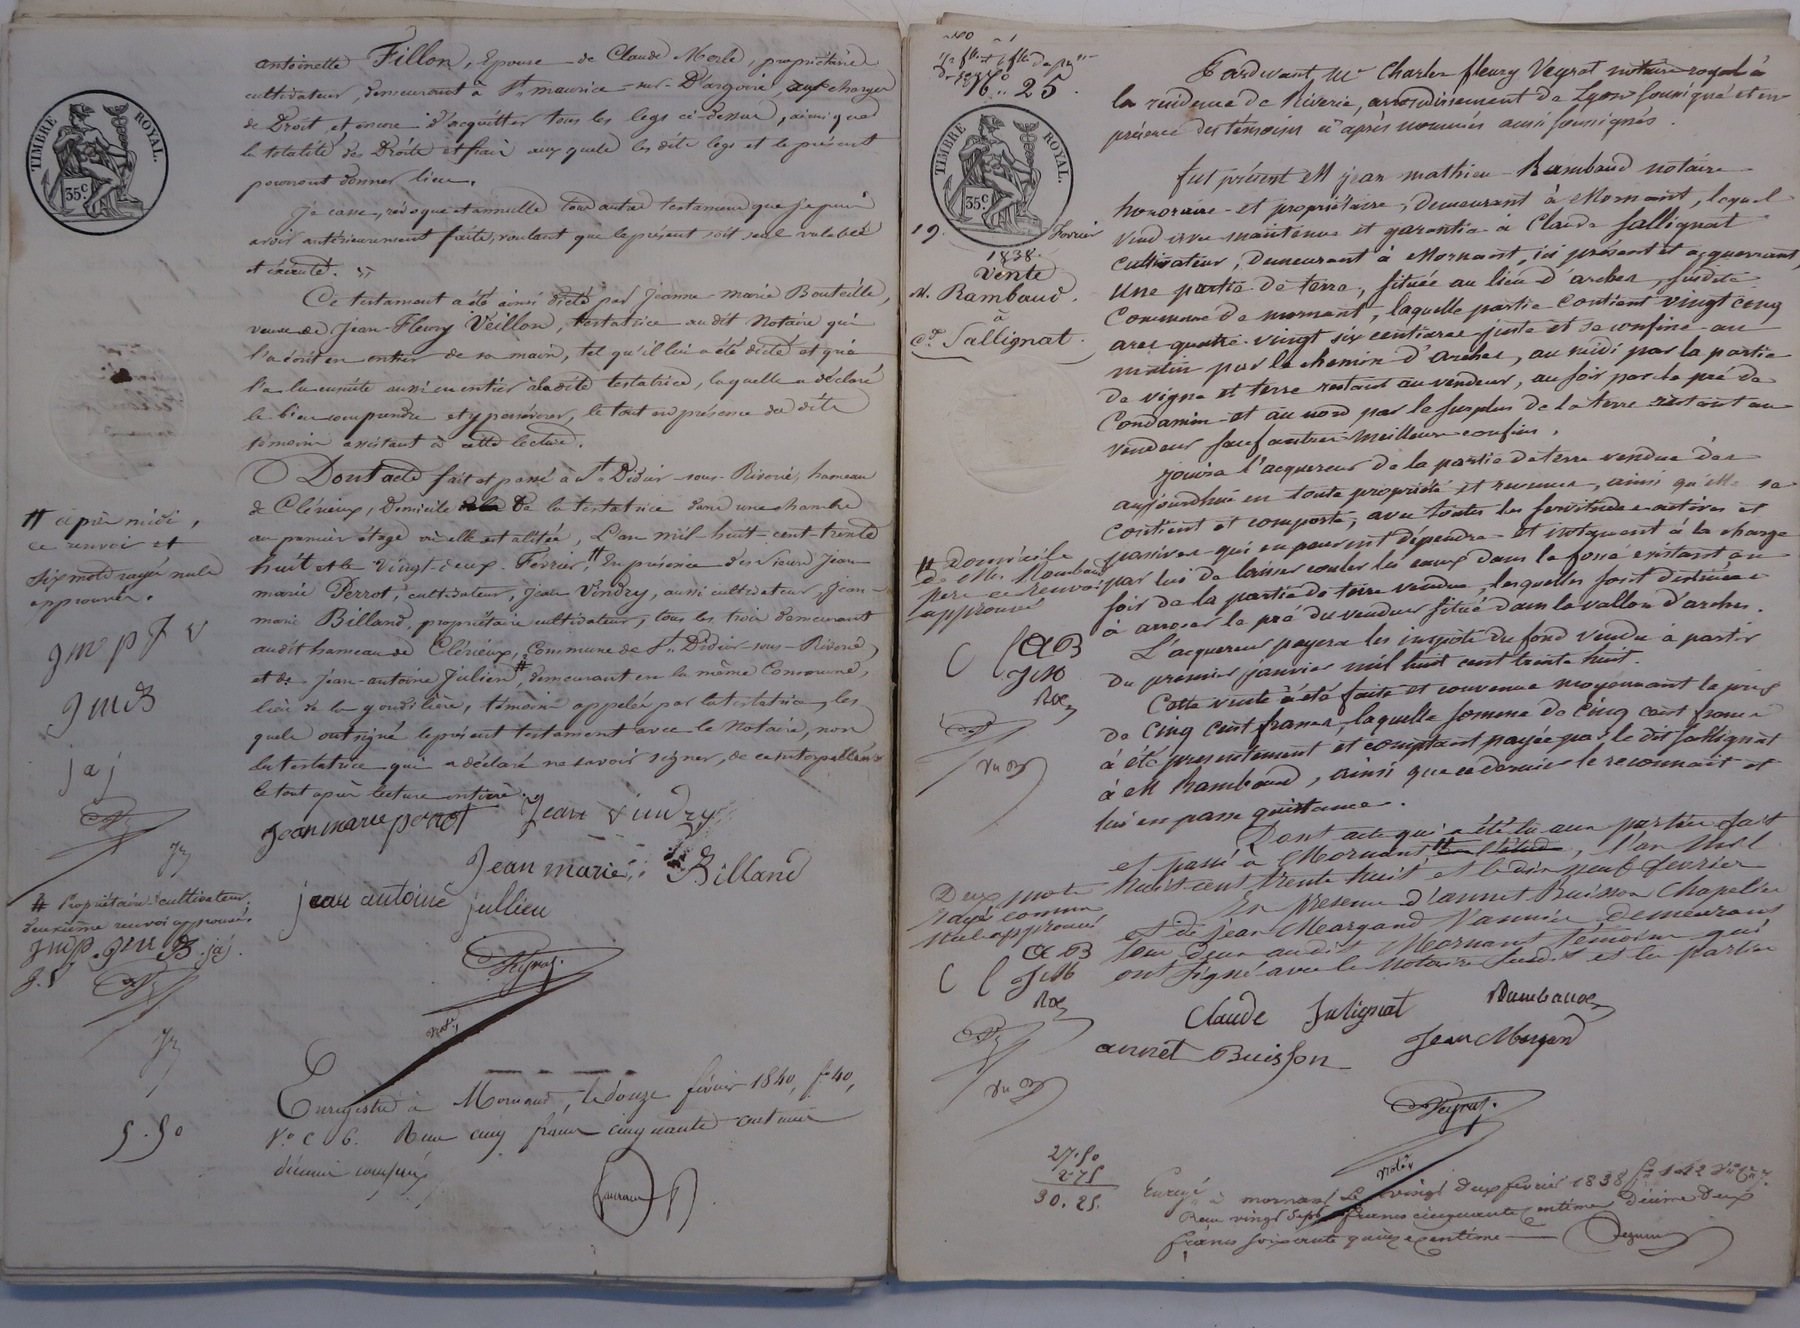 antoinette Fillon, Epouse de Claude Merle, propriétaire
cultivateur, demeurant à St maurice-sur-D'argoire, aux charges
de Droit et encore d'acquitter tous les legs ci-dessus, ainsi que
la totalité des Droits et frais aux quels les dits legs et le présent
pourront donner lieu.
Je casse, révoque et annulle tout autre testament que je puis
avoir antérieurement faits, voulant que le présent soit seul valable
et exécuté.
Ce testament a été ainsi dicté par Jeanne-marie Bouteille,
veuve de Jean-Fleury Veillon, testatrice audit Notaire qui
l'a écrit en entier de sa main, tel qu'il lui a été dicté et qui
l'a lu ensuite aussi en entier à la dite testatrice, laquelle a déclaré
le bien comprendre et y persévérer, le tout en présence des dits
témoins assistant à cette lecture.
Dont acte fait et passé à St Didier-sous-Riverie, hameau
de Clérieux, Domicile de la testatrice dans une chambre
au premier étage où elle est alitée, L'an mil huit-cent-trente
huit et le vingt-deux Février, # En présence des sieurs Jean-
marie Perrot, cultivateur, Jean Vindry, aussi cultivateur, Jean-
marie Billand, propriétaire cultivateur, tous les trois demeurant
audit hameau de Clérieux, Commune de St Didier-sous-Riverie,
et de Jean-antoine Julien #, demeurant en la même Commune,
lieu de la goudilière, témoins appelés par la testatrice, les
quels ont signé le présent testament avec le Notaire, non
la testatrice qui a déclaré ne savoir signer, de ce interpellée,
le tout après lecture entière.
Jean marie perrot Jean vindry
Jean marie Billand
jean antoine jullien
Veyrat
Notre
Enregistré à Mornant, le douze février 1840, fo 40,
Vo C 6. Reçu cinq francs cinquante centimes
décime compris
TIMBRE ROYAL.
35c
# après midi,
ce renvoi et
six mots rayés nuls
approuvés.
J m p J V
J m B
j a j
# Propriétaire cultivateur,
deuxième renvoi approuvé.
J m p. J m B. jaj.
J. V
5.50
16.. 25.
TIMBRE ROYAL.
35c
19. Fevrier
1838.
Vente
M. Rambaud.
à
Cde Sallignat.
Pardevant Me Charles fleury Veyrat notaire royal à
la residence de Riverie, arrondissement de Lyon soussigné et en
présence des témoins ci après nommés aussi soussignés.
fut présent M jean mathieu Rambaud notaire
honoraire et propriétaire, demeurant à Mornant, lequel
vend avec maintenue et garantie à Claude Sallignat
cultivateur, demeurant à Mornant, ici présent et acquerreur,
Une partie de terre, située au lieu d'arches, susdite
Commune de mornant, laquelle partie Contient vingt cinq
ares quatre-vingt six centiares juste et se confine au
matin par le chemin d'arches, au midi par la partie
de vigne et terre restant au vendeur, au soir par le pré de
Condamin et au nord par le surplus de la terre restant au
vendeur sauf autres meilleurs confins.
jouira l'acquereur de la partie de terre vendue dès
aujourdhui en toute propriété et revenus, ainsi qu'elle se
contient et comporte, avec toutes les servitudes actives et
passives qui en peuvent dépendre et notamment à la charge
par lui de laisser couler les eaux dans la fosse existant au
soir de la partie de terre vendue, lesquelles sont destinées
à arroser le pré du vendeur situé dans le vallon d'arches.
L'acquereur payera les impôts du fond vendu à partir
du premier janvier mil huit cent trente huit.
Cette vente a été faite et convenue moyennant le prix
de Cinq cent francs, laquelle somme de Cinq cent francs
à été presentement et comptant payée par le dit Sallignat
à M Rambaud, ainsi que ce dernier le reconnait et
lui en passe quittance.
Dont acte qui a été lu aux parties fait
et passé à Mornant # en l'étude, l'an Mil
huit cent trente huit et le dix neuf fevrier
En presence d'annet Buisson Chapelier
et de Jean Margand Vannier demeurans
tous deux audit Mornant témoins qui
ont signé avec le Notaire susdit et les parties
# Domicile
de Me Rambaud
père ce renvoi
approuvé
C S A B
J M
Deux mots
rayés comme
nuls approuvés
A B
J M
Claude Salignat Rambaud
annet Buisson Jean Margand
Veyrat.
Notre
27.50
2.75
30.25.
Enregé à mornant Le vingt deux fevrier 1838
Reçu vingt sept francs cinquante centimes Décime deux
francs soixante quinze centimes